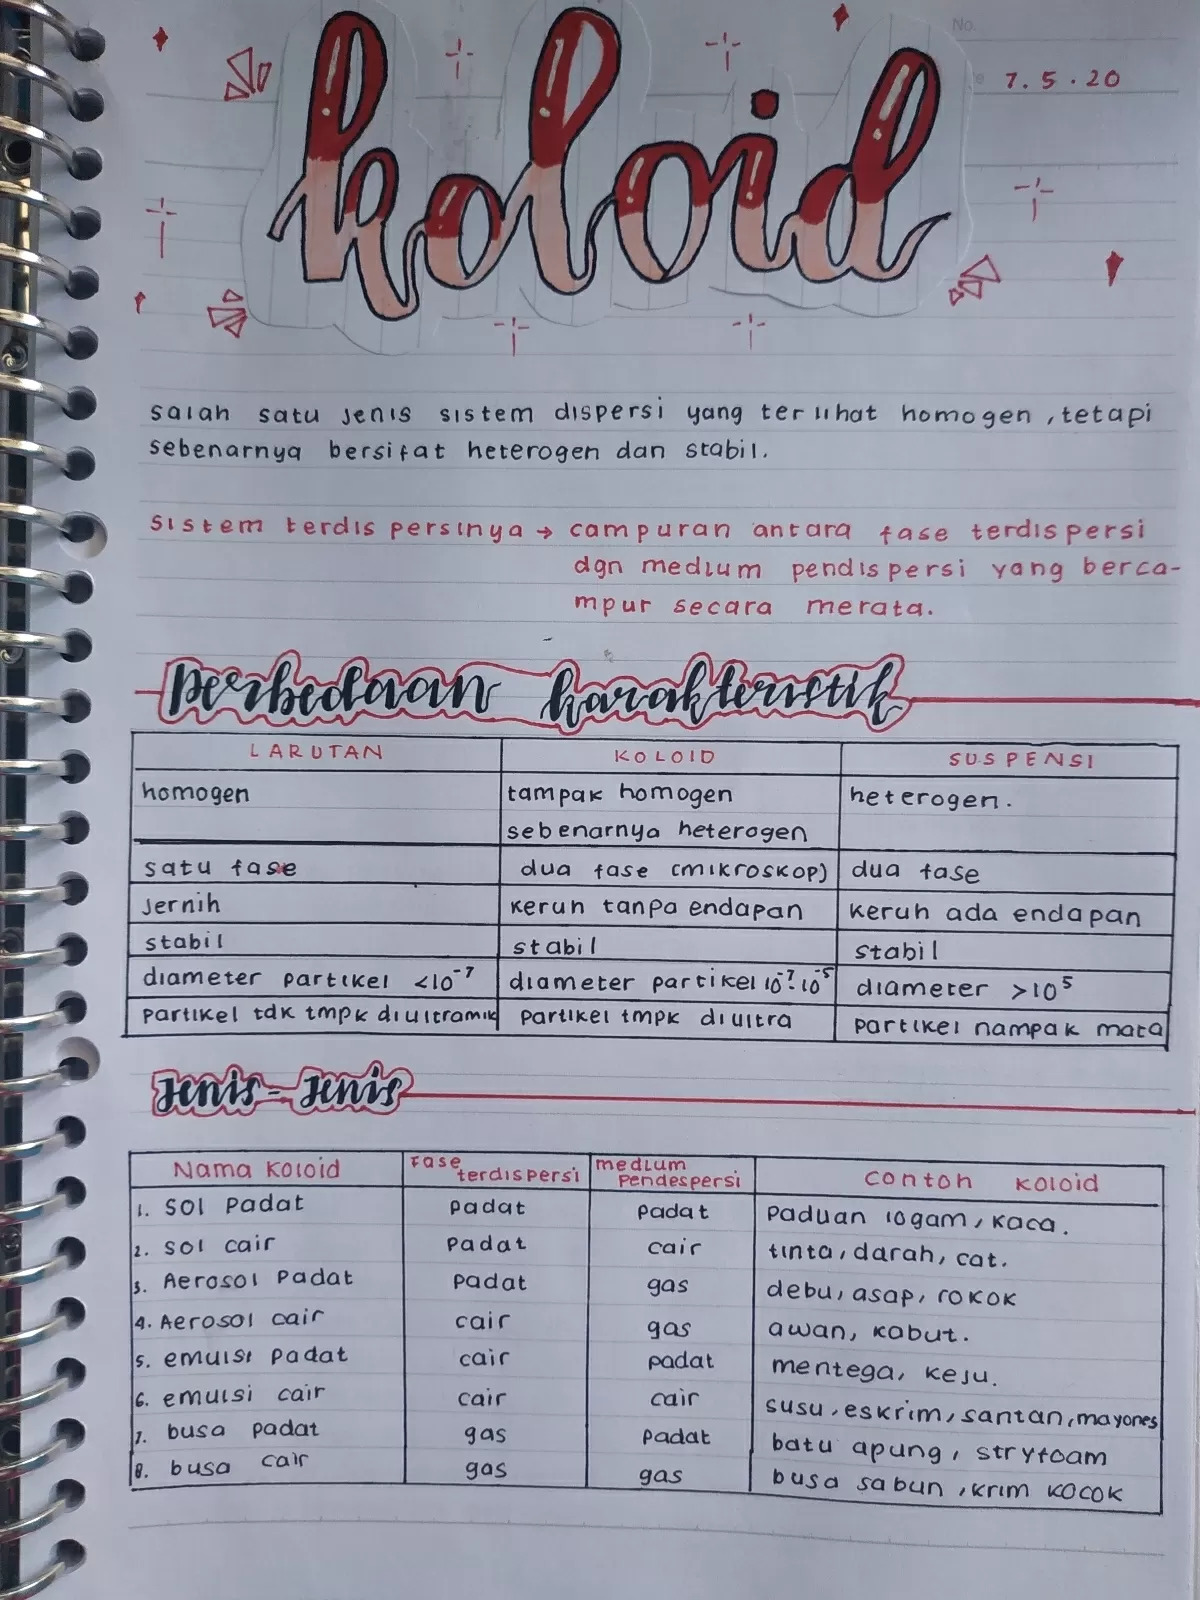 No.
7.5.20
koloid
salah satu jenis sistem dispersi yang terlihat homogen, tetapi
sebenarnya bersifat heterogen dan stabil.
sistem terdispersinya → campuran antara fase terdispersi
dgn medium pendispersi yang berca-
mpur secara merata.
perbedaan karakteristik
LARUTAN KOLOID SUSPENSI
homogen tampak homogen heterogen.
sebenarnya heterogen
satu fase dua fase (MIKROSKOP) dua fase
Jernih keruh tanpa endapan keruh ada endapan
stabil stabil stabil
diameter partikel <10⁻⁷ diameter partikel 10⁻⁷-10⁻⁵ diameter >10⁵
partikel tdk tmpk diultramik partikel tmpk diultra partikel nampak mata
Jenis-Jenis
Nama Koloid Fase terdispersi medium pendespersi contoh koloid
1. sol padat padat padat paduan logam, kaca.
2. sol cair padat cair tinta, darah, cat.
3. Aerosol padat padat gas debu, asap, rokok
4. Aerosol cair cair gas awan, kabut.
5. emulsi padat cair padat mentega, keju.
6. emulsi cair cair cair susu, eskrim, santan, mayones
7. busa padat gas padat batu apung, stryfoam
8. busa cair gas gas busa sabun, krim kocok